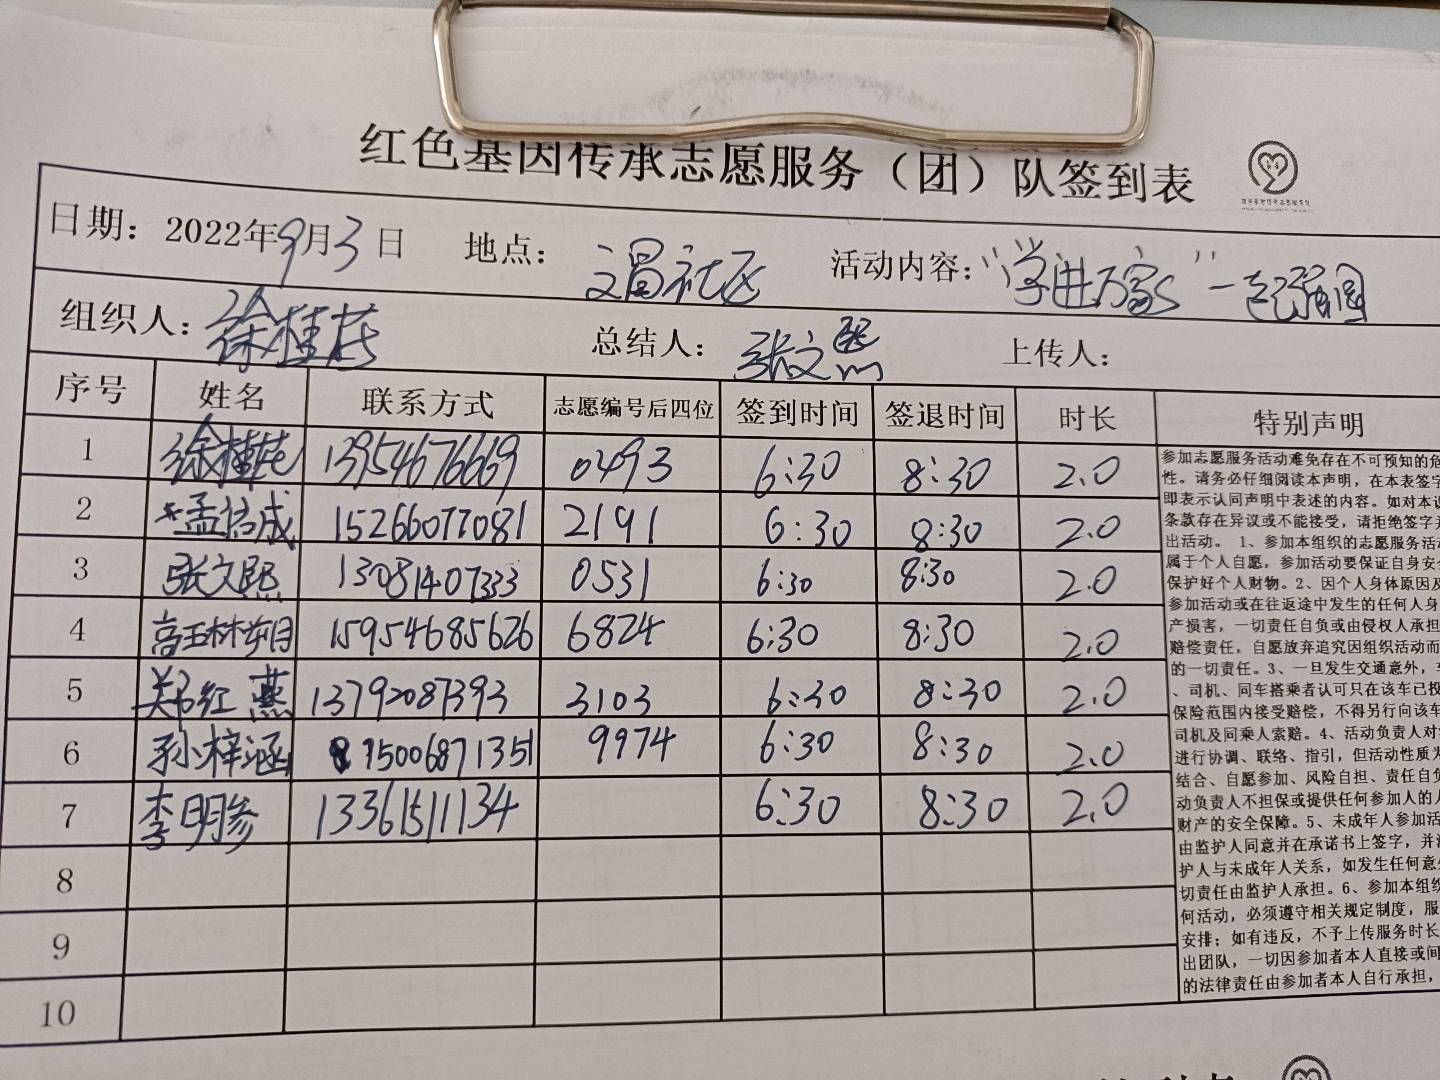 红色基因传承志愿服务（团）队签到表
日期：2022年9月3日 地点：文昌社区 活动内容：“学进万家”一起强国
组织人：徐桂花 总结人：张文熙 上传人：
序号 姓名 联系方式 志愿编号后四位 签到时间 签退时间 时长 特别声明
1 徐桂花 13954676669 0493 6:30 8:30 2.0
2 孟信成 15266077081 2191 6:30 8:30 2.0
3 张文熙 13081407333 0531 6:30 8:30 2.0
4 高玉林 15954685626 6824 6:30 8:30 2.0
5 郑红燕 13792087393 3103 6:30 8:30 2.0
6 孙梓涵 15006871351 9974 6:30 8:30 2.0
7 李明参 13361511134 6:30 8:30 2.0
8
9
10
参加志愿服务活动难免存在不可预知的危
性。请务必仔细阅读本声明，在本表签字
即表示认同声明中表述的内容。如对本
条款存在异议或不能接受，请拒绝签字并
出活动。 1、参加本组织的志愿服务活动
属于个人自愿，参加活动要保证自身安全
保护好个人财物。2、因个人身体原因及
参加活动或在往返途中发生的任何人身
产损害，一切责任自负或由侵权人承担
赔偿责任，自愿放弃追究因组织活动而
的一切责任。3、一旦发生交通意外，
、司机、同车搭乘者认可只在该车已投
保险范围内接受赔偿，不得另行向该车
司机及同乘人索赔。4、活动负责人对
进行协调、联络、指引，但活动性质为
结合、自愿参加、风险自担、责任自负
动负责人不担保或提供任何参加人的人
财产的安全保障。5、未成年人参加活
由监护人同意并在承诺书上签字，并
护人与未成年人关系，如发生任何意外
切责任由监护人承担。6、参加本组织
何活动，必须遵守相关规定制度，服
安排；如有违反，不予上传服务时长
出团队，一切因参加者本人直接或间
的法律责任由参加者本人自行承担，